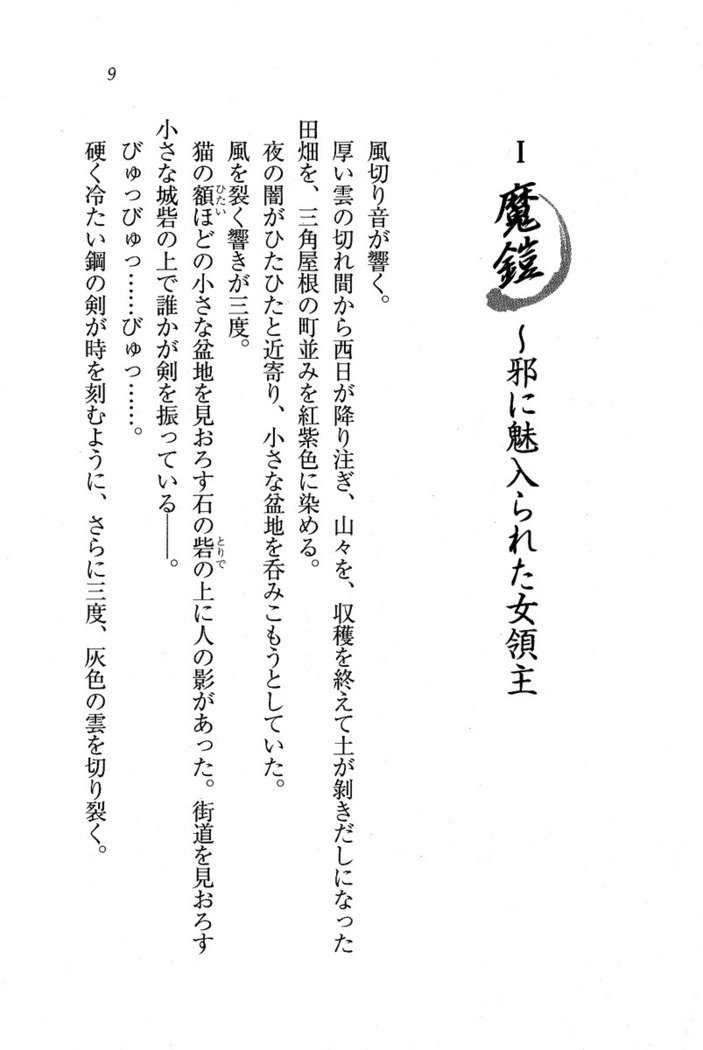 9
I 魔鎧 ～邪に魅入られた女領主
風切り音が響く。
厚い雲の切れ間から西日が降り注ぎ、山々を、収穫を終えて土が剝きだしになった
田畑を、三角屋根の町並みを紅紫色に染める。
夜の闇がひたひたと近寄り、小さな盆地を呑みこもうとしていた。
風を裂く響きが三度。
猫の額ひたいほどの小さな盆地を見おろす石の砦とりでの上に人の影があった。街道を見おろす
小さな城砦の上で誰かが剣を振っている――。
びゅっびゅっ……びゅっ……。
硬く冷たい鋼の剣が時を刻むように、さらに三度、灰色の雲を切り裂く。